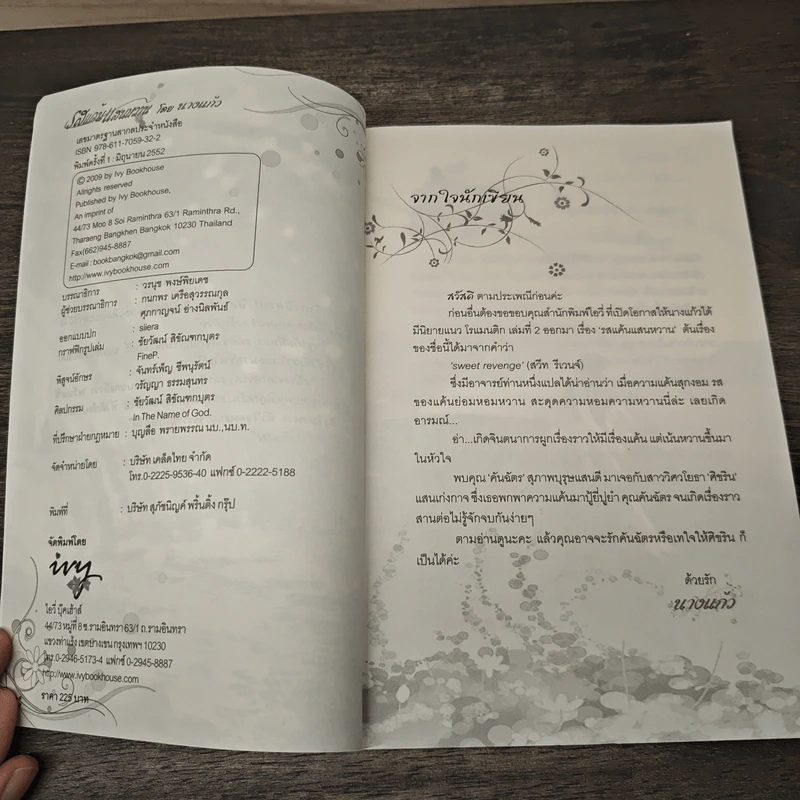 รสแค้นแสนหวาน โดย นางแก้ว
เลขมาตรฐานสากลประจำหนังสือ
ISBN 978-611-7059-32-2
พิมพ์ครั้งที่ 1 : มิถุนายน 2552
© 2009 by Ivy Bookhouse
Allrights reserved
Published by Ivy Bookhouse,
An imprint of
44/73 Moo 8 Soi Raminthra 63/1 Raminthra Rd.,
Tharaeng Bangkhen Bangkok 10230 Thailand
Fax(662)945-8887
E-mail : bookbangkok@gmail.com
http://www.ivybookhouse.com
บรรณาธิการ : วรนุช พงษ์พิยเดช
ผู้ช่วยบรรณาธิการ : กนกพร เครือสุวรรณกุล
ศุภกาญจน์ อ่างนิลพันธ์
ออกแบบปก : siiera
กราฟฟิกรูปเล่ม : ชัยวัฒน์ สิขัณฑกบุตร
FineP.
พิสูจน์อักษร : จันทร์เพ็ญ ชีพนุรัตน์
วรัญญา ธรรมสุนทร
ศิลปกรรม : ชัยวัฒน์ สิขัณฑกบุตร
In The Name of God.
ที่ปรึกษาฝ่ายกฎหมาย : บุญลือ พรายพรรณ นบ.,นบ.ท.
จัดจำหน่ายโดย : บริษัท เคล็ดไทย จำกัด
โทร.0-2225-9536-40 แฟกซ์ 0-2222-5188
พิมพ์ที่ : บริษัท สุภัชนิญค์ พริ้นติ้ง กรุ๊ป
จัดพิมพ์โดย
ivy
ไอวี่ บุ๊คเฮ้าส์
44/73 หมู่ที่ 8 ซ.รามอินทรา 63/1 ถ.รามอินทรา
แขวงท่าแร้ง เขตบางเขน กรุงเทพฯ 10230
โทร.0-2946-5173-4 แฟกซ์ 0-2945-8887
http://www.ivybookhouse.com
ราคา 225 บาท
จากใจนักเขียน
สวัสดี ตามประเพณีก่อนค่ะ
ก่อนอื่นต้องขอขอบคุณสำนักพิมพ์ไอวี่ ที่เปิดโอกาสให้นางแก้วได้
มีนิยายแนว โรแมนติก เล่มที่ 2 ออกมา เรื่อง ‘รสแค้นแสนหวาน’ ต้นเรื่อง
ของชื่อนี้ได้มาจากคำว่า
‘sweet revenge’ (สวีท รีเวนจ์)
ซึ่งมีอาจารย์ท่านหนึ่งแปลได้น่าอ่านว่า เมื่อความแค้นสุกงอม รส
ของแค้นย่อมหอมหวาน สะดุดความหอมความหวานนี่ล่ะ เลยเกิด
อารมณ์...
อ๋า...เกิดจินตนาการผูกเรื่องราวให้มีเรื่องแค้น แต่เน้นหวานขึ้นมา
ในหัวใจ
พบคุณ ‘คันฉัตร’ สุภาพบุรุษแสนดี มาเจอกับสาววิศวโยธา ‘ศิขริน’
แสนเก่งกาจ ซึ่งเธอพกพาความแค้นมาปู้ยี่ปู้ยำ คุณคันฉัตร จนเกิดเรื่องราว
สานต่อไม่รู้จักจบกันง่ายๆ
ตามอ่านดูนะคะ แล้วคุณอาจจะรักคันฉัตรหรือเทใจให้ศิขริน ก็
เป็นได้ค่ะ
ด้วยรัก
นางแก้ว